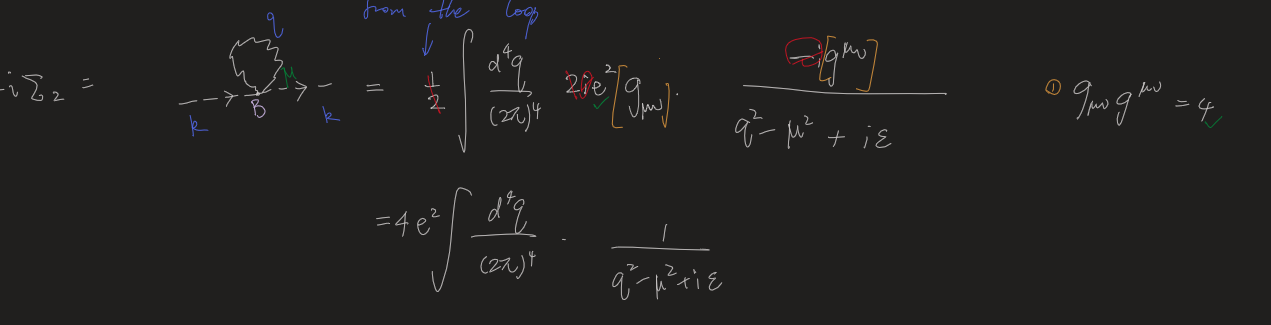 from the loop
-iΣ₂ = q μ B k k = 1/2 ∫ d⁴q/(2π)⁴ 2ie² [g_μν] · -i[g^μν]/(q² - μ² + iε) ① g_μν g^μν = 4 ✓
= 4e² ∫ d⁴q/(2π)⁴ · 1/(q² - μ² + iε)